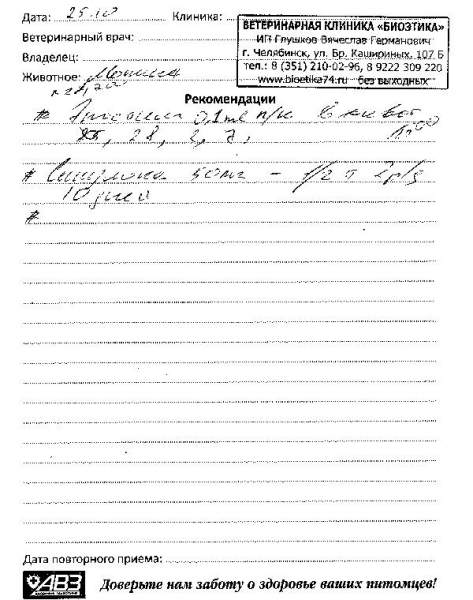 Дата: 25.10 Клиника:
ВЕТЕРИНАРНАЯ КЛИНИКА «БИОЭТИКА»
ИП Глушков Вячеслав Германович
г. Челябинск, ул. Бр. Кашириных, 107 Б
тел.: 8 (351) 210-02-96, 8 9222 309 220
www.bioetika74.ru без выходных
Ветеринарный врач:
Владелец:
Животное:
Рекомендации
# 0,1 мл п/к в живот
25, 28, 2, 7,
# 50мг - 1/2 т 2р/д
10 дней
#
Дата повторного приема:
АВЗ
Доверьте нам заботу о здоровье ваших питомцев!